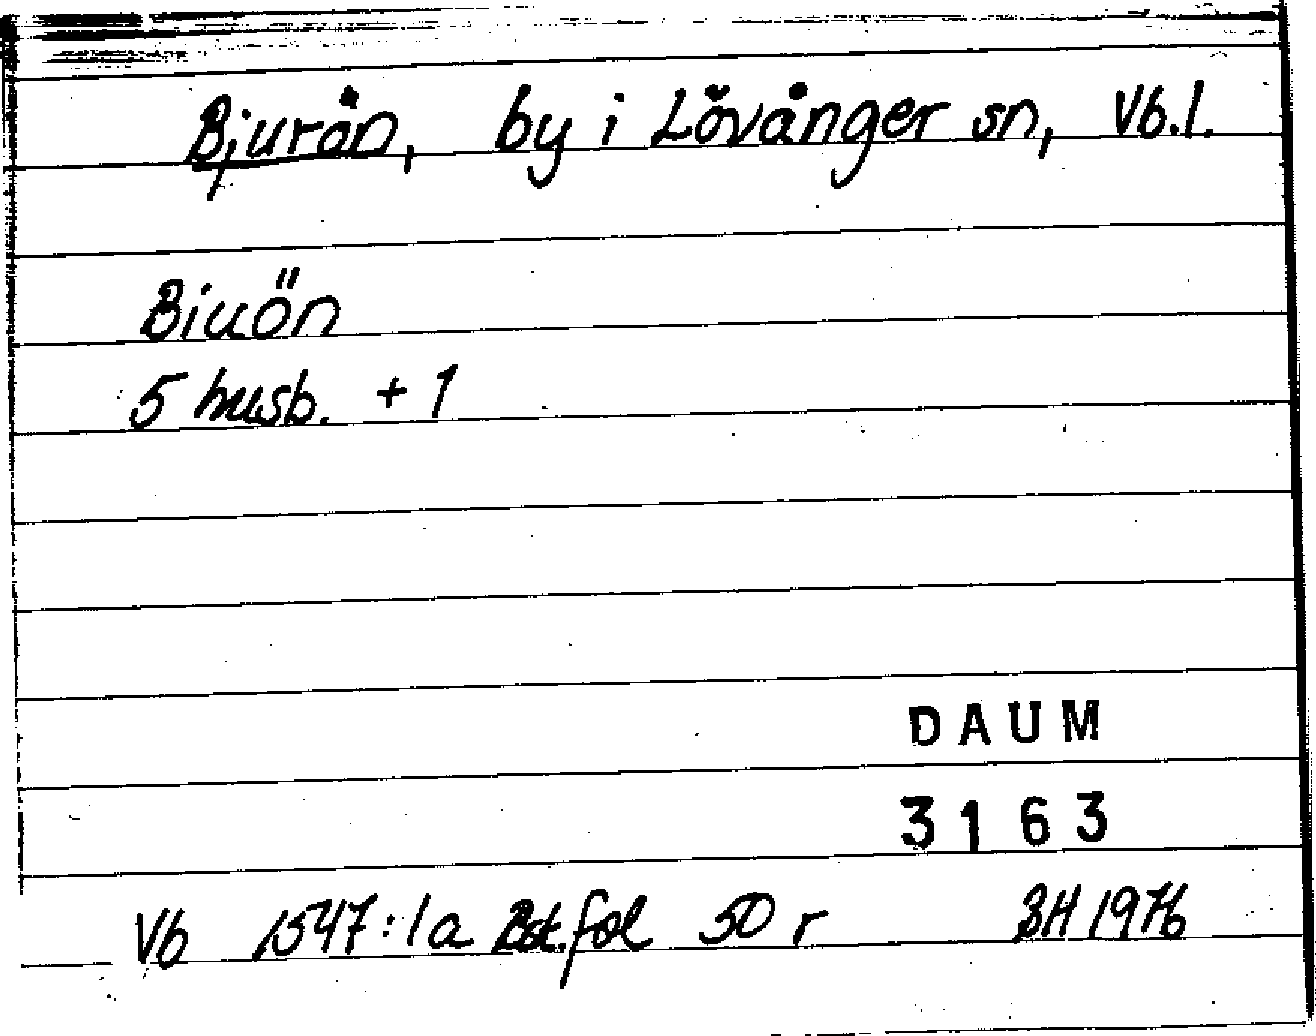 Bjurön, by i Lövånger sn, Vb.l.
Biuön
5 husb. + 1
DAUM
3163
Vb 1547:1a Bst. fol 50 r BH 1976